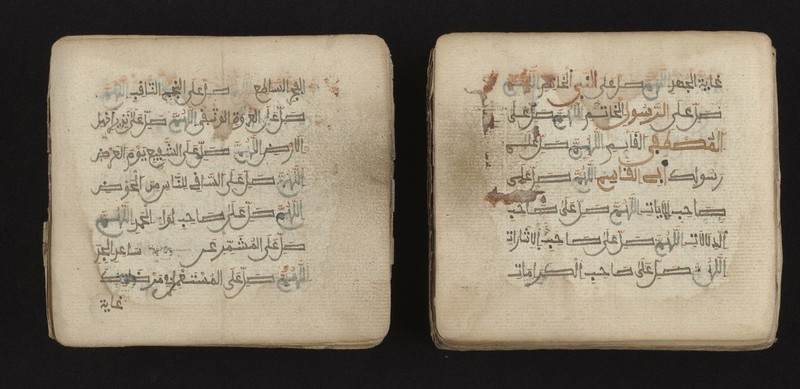 الفجر الساطع صل على النجم الثاقب اللهم
صل على العروة الوثقى اللهم صل على نذير اهل
الارض اللهم صل على الشفيع يوم العرض
اللهم صل على الساقي للناس من الحوض
اللهم صل على صاحب لواء الحمد اللهم
صل على المشمر عن ساعد الجد
اللهم صل على المستعمل في مرضاتك
غاية
غاية الجهد اللهم صل على النبي الخاتم اللهم
صل على الرسول الخاتم اللهم صل على
المصطفى القايم اللهم صل على
رسولك ابي القاسم اللهم صل على
صاحب الايات اللهم صل على صاحب
الدلالات اللهم صل على صاحب الاشارات
اللهم صل على صاحب الكرامات